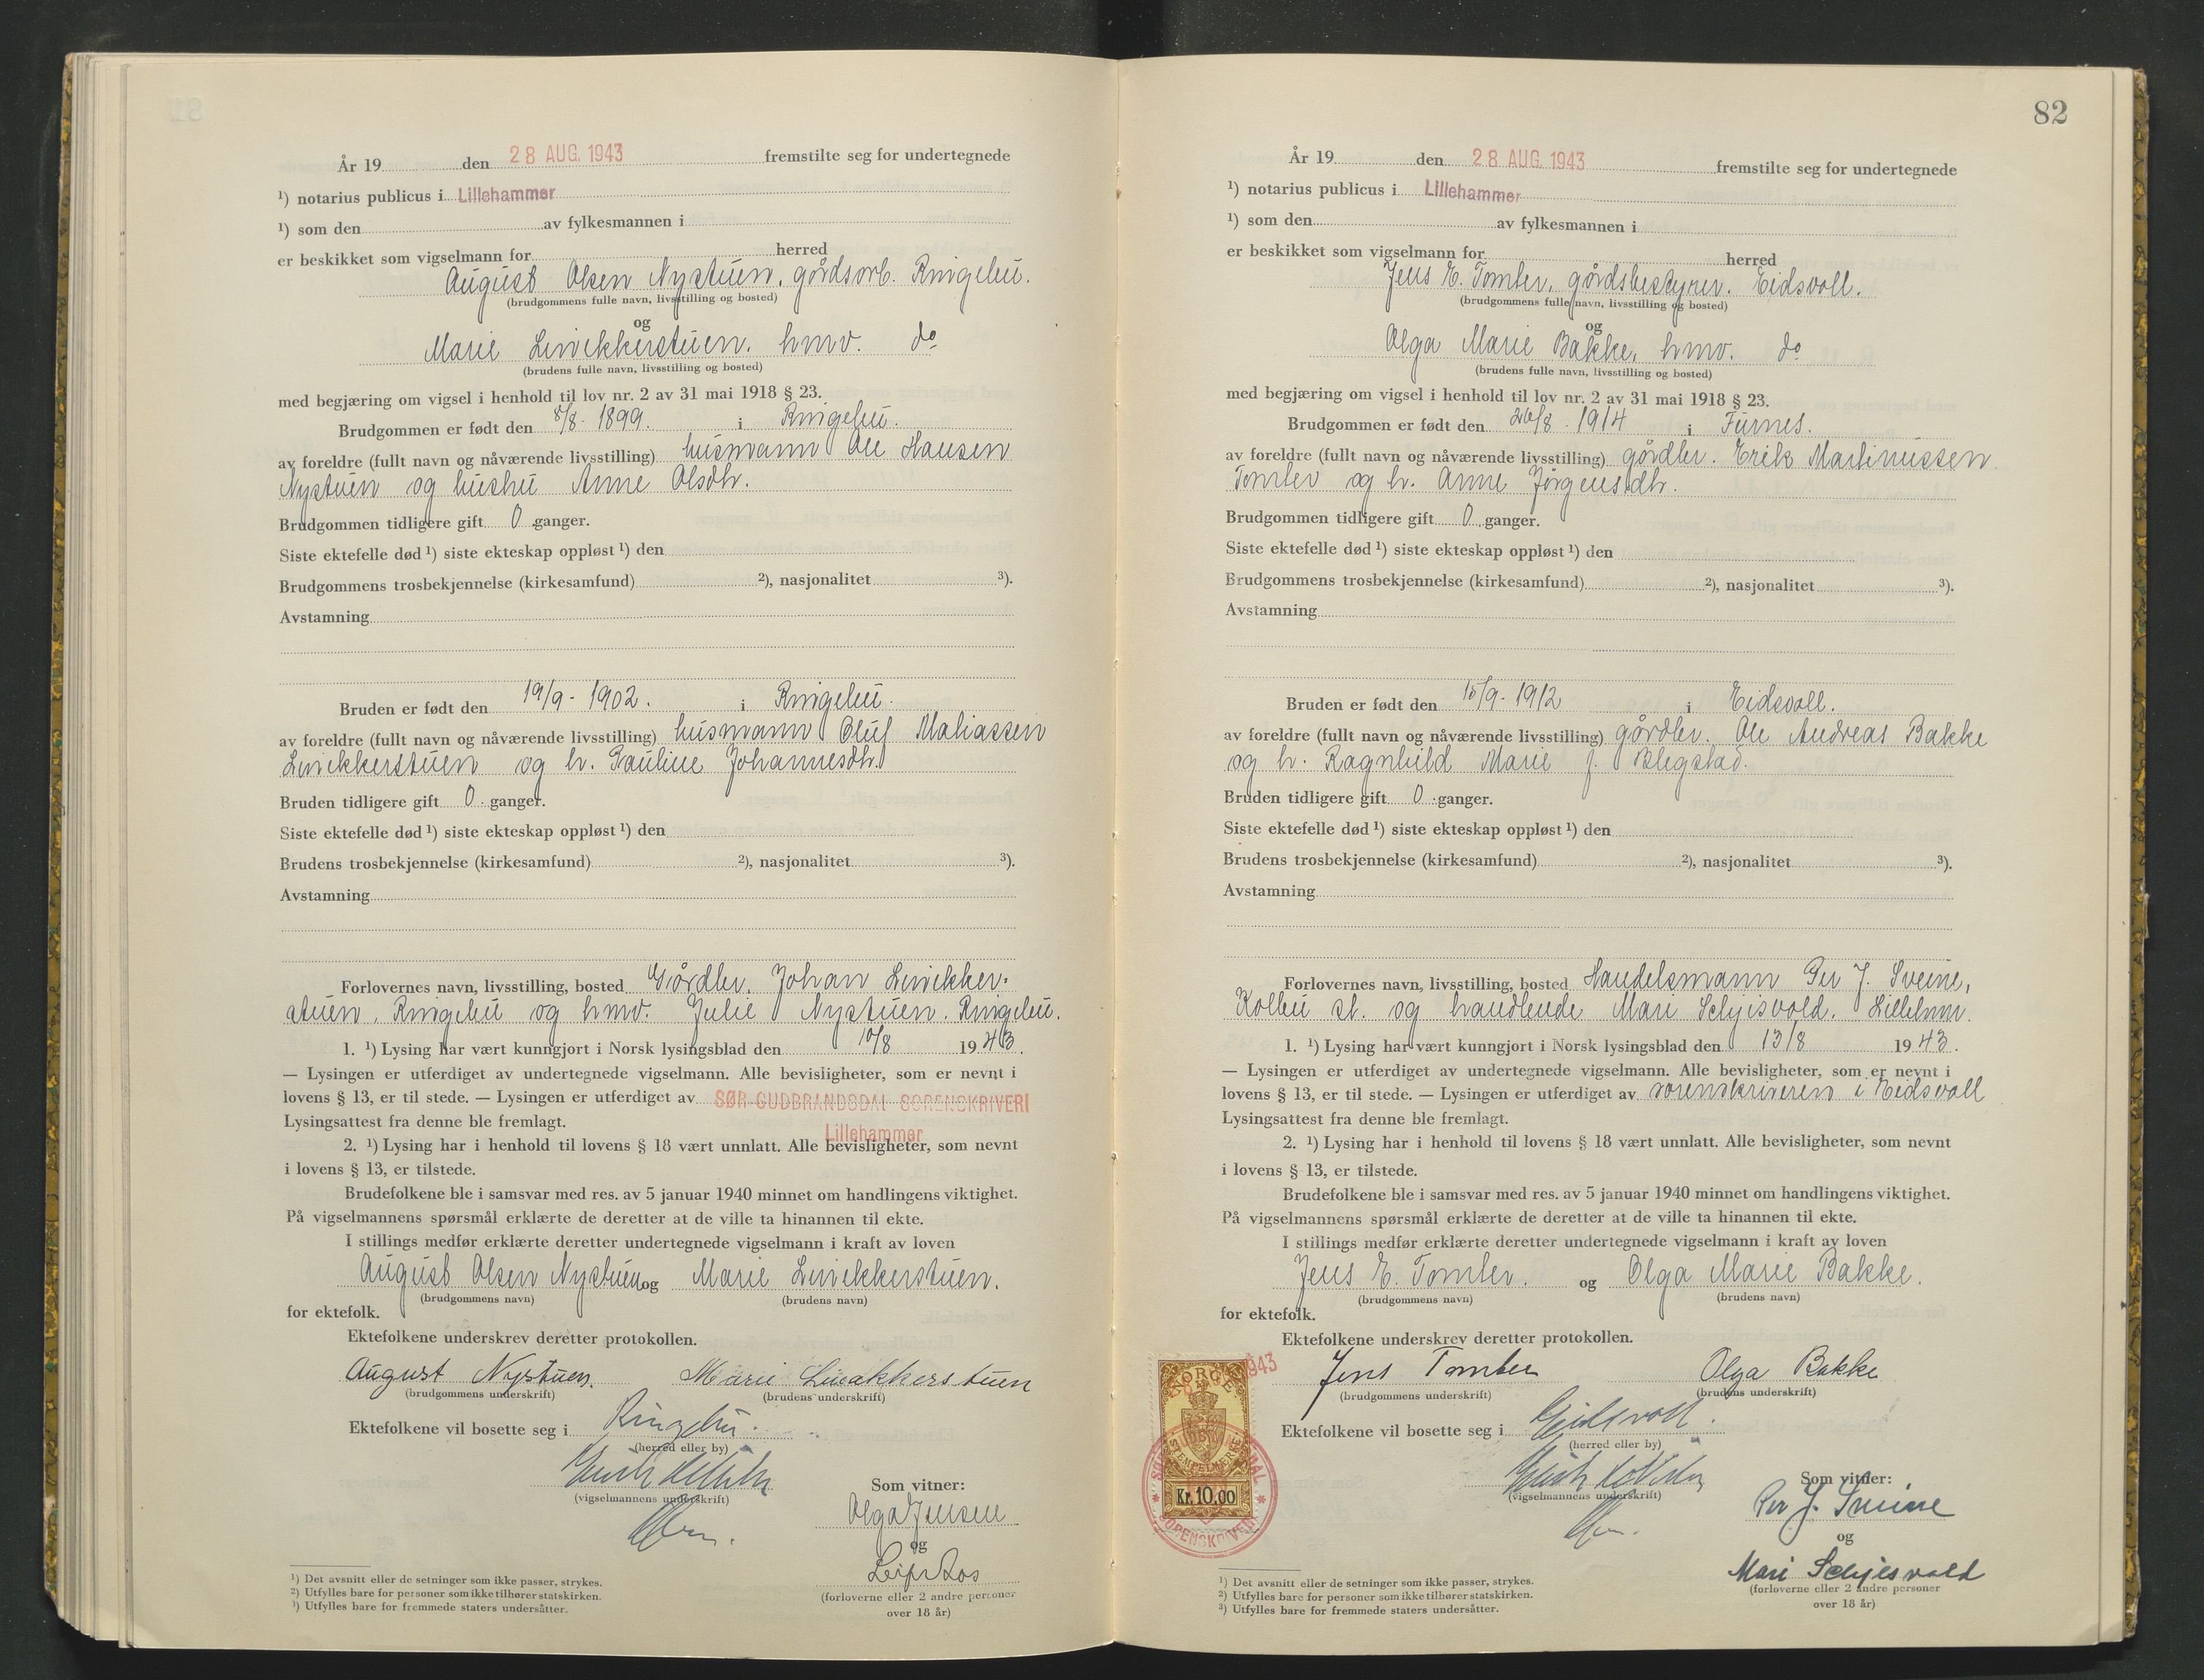 År 19 den 28 AUG. 1943 fremstilte seg for undertegnede
¹) notarius publicus i Lillehammer
¹) som den av fylkesmannen i
er beskikket som vigselmann for herred
August Olsen Nystuen, gårdsarb. Ringebu.
(brudgommens fulle navn, livsstilling og bosted)
og
Marie Linekkerstuen. hmv. do
(brudens fulle navn, livsstilling og bosted)
med begjæring om vigsel i henhold til lov nr. 2 av 31 mai 1918 § 23.
Brudgommen er født den 8/8 - 1899. i Ringebu.
av foreldre (fullt navn og nåværende livsstilling) husmann Ole Hansen
Nystuen og hushu Anne Olsdtr.
Brudgommen tidligere gift 0 ganger.
Siste ektefelle død ¹) siste ekteskap oppløst ¹) den
Brudgommens trosbekjennelse (kirkesamfund) ²), nasjonalitet ³).
Avstamning
Bruden er født den 19/9 - 1902. i Ringebu.
av foreldre (fullt navn og nåværende livsstilling) husmann Oluf Matiassen
Linekkerstuen og h. Pauline Johannesdtr.
Bruden tidligere gift 0 ganger.
Siste ektefelle død ¹) siste ekteskap oppløst ¹) den
Brudens trosbekjennelse (kirkesamfund) ²), nasjonalitet ³).
Avstamning
Forlovernes navn, livsstilling, bosted Gårdbr. Johan Linekker-
stuen, Ringebu og hmv. Julie Nystuen. Ringebu.
1. ¹) Lysing har vært kunngjort i Norsk lysingsblad den 10/8 1943.
— Lysingen er utferdiget av undertegnede vigselmann. Alle bevisligheter, som er nevnt i
lovens § 13, er til stede. — Lysingen er utferdiget av SØR-GUDBRANDSDAL SORENSKRIVERI
Lysingsattest fra denne ble fremlagt.
Lillehammer
2. ¹) Lysing har i henhold til lovens § 18 vært unnlatt. Alle bevisligheter, som nevnt
i lovens § 13, er tilstede.
Brudefolkene ble i samsvar med res. av 5 januar 1940 minnet om handlingens viktighet.
På vigselmannens spørsmål erklærte de deretter at de ville ta hinannen til ekte.
I stillings medfør erklærte deretter undertegnede vigselmann i kraft av loven
August Olsen Nystuen og Marie Linekkerstuen.
(brudgommens navn) (brudens navn)
for ektefolk.
Ektefolkene underskrev deretter protokollen.
August Nystuen. Marie Lineakkerstuen
(brudgommens underskrift) (brudens underskrift)
Ektefolkene vil bosette seg i Ringebu.
(herred eller by)
(vigselmannens underskrift)
Som vitner:
Olga Jensen
og
Leif Aos
(forloverne eller 2 andre personer
over 18 år)
¹) Det avsnitt eller de setninger som ikke passer, strykes.
²) Utfylles bare for personer som ikke tilhører statskirken.
³) Utfylles bare for fremmede staters undersåtter.
82
År 19 den 28 AUG. 1943 fremstilte seg for undertegnede
¹) notarius publicus i Lillehammer
¹) som den av fylkesmannen i
er beskikket som vigselmann for herred
Jens E. Tomter, gårdsbestyrer. Eidsvoll.
(brudgommens fulle navn, livsstilling og bosted)
og
Olga Marie Bakke, hmv. do
(brudens fulle navn, livsstilling og bosted)
med begjæring om vigsel i henhold til lov nr. 2 av 31 mai 1918 § 23.
Brudgommen er født den 26/8 - 1914 i Furnes.
av foreldre (fullt navn og nåværende livsstilling) gårdbr. Erik Martinussen
Tomter og h. Anne Jørgensdtr.
Brudgommen tidligere gift 0 ganger.
Siste ektefelle død ¹) siste ekteskap oppløst ¹) den
Brudgommens trosbekjennelse (kirkesamfund) ²), nasjonalitet ³).
Avstamning
Bruden er født den 15/9 - 1912 i Eidsvoll.
av foreldre (fullt navn og nåværende livsstilling) gårdbr. Ole Andreas Bakke
og h. Ragnhild Marie f. Blegstad.
Bruden tidligere gift 0 ganger.
Siste ektefelle død ¹) siste ekteskap oppløst ¹) den
Brudens trosbekjennelse (kirkesamfund) ²), nasjonalitet ³).
Avstamning
Forlovernes navn, livsstilling, bosted Handelsmann Per J. Sveine,
Kolbu st. og handlende Mari Seljesvold. Lillehmr.
1. ¹) Lysing har vært kunngjort i Norsk lysingsblad den 13/8 1943.
— Lysingen er utferdiget av undertegnede vigselmann. Alle bevisligheter, som er nevnt i
lovens § 13, er til stede. — Lysingen er utferdiget av sorenskriveren i Eidsvoll
Lysingsattest fra denne ble fremlagt.
2. ¹) Lysing har i henhold til lovens § 18 vært unnlatt. Alle bevisligheter, som nevnt
i lovens § 13, er tilstede.
Brudefolkene ble i samsvar med res. av 5 januar 1940 minnet om handlingens viktighet.
På vigselmannens spørsmål erklærte de deretter at de ville ta hinannen til ekte.
I stillings medfør erklærte deretter undertegnede vigselmann i kraft av loven
Jens E. Tomter. og Olga Marie Bakke.
(brudgommens navn) (brudens navn)
for ektefolk.
Ektefolkene underskrev deretter protokollen.
Jens Tomter Olga Bakke
(brudgommens underskrift) (brudens underskrift)
Ektefolkene vil bosette seg i Eidsvoll.
(herred eller by)
(vigselmannens underskrift)
Som vitner:
Per J. Sveine
og
Mari Seljesvold
(forloverne eller 2 andre personer
over 18 år)
943
NORGE
STEMPELMERKE
Kr. 10.00
SORENSKRIVERI
¹) Det avsnitt eller de setninger som ikke passer, strykes.
²) Utfylles bare for personer som ikke tilhører statskirken.
³) Utfylles bare for fremmede staters undersåtter.